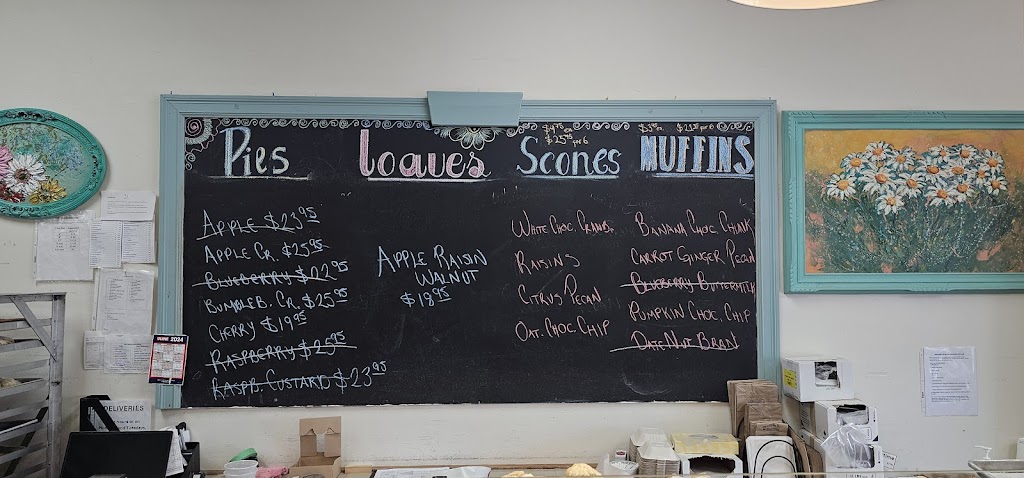 Pies
APPLE $23.95
APPLE CR. $25.95
BLUEBERRY $22.95
BUMBLEB. CR. $25.95
CHERRY $19.95
RASPBERRY $25.95
RASPB. CUSTARD $23.95
Loaves
APPLE RAISIN
WALNUT
$19.95
$4.75 ea
$25.95 per 6
Scones
WHITE CHOC. CRANB.
RAISINS
CITRUS PECAN
OAT. CHOC. CHIP
MUFFINS
BANANA CHOC. CHUNK
CARROT GINGER PECAN
BLUEBERRY BUTTERMILK
PUMPKIN CHOC. CHIP
DATE NUT BRAN
2024
DELIVERIES